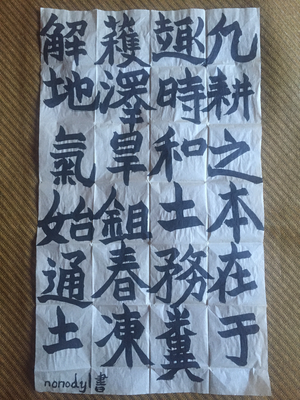 凡耕之本在于
趣時和土務糞
穫澤旱鉏春凍
解地氣始通土
nonody 書